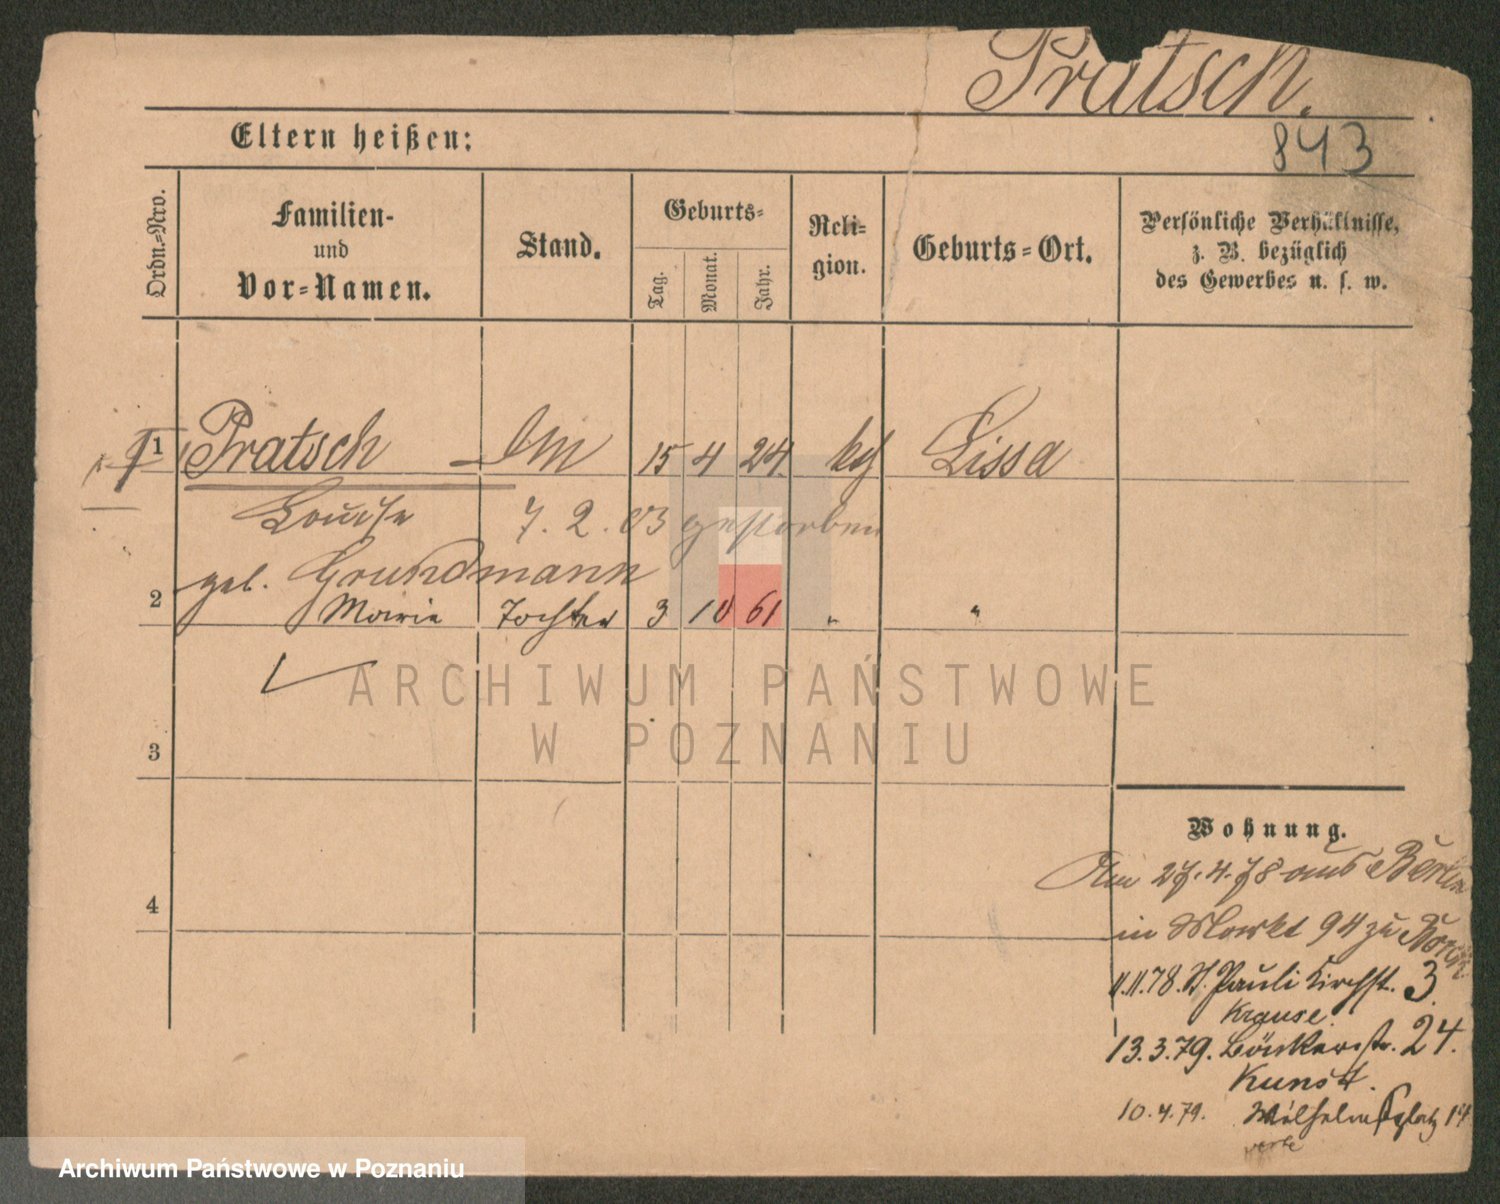 Pratsch.
843
Eltern heißen:
Ordn.-Nro.
Familien-
und
Vor-Namen.
Stand.
Geburts-
Tag.
Monat.
Jahr.
Reli-
gion.
Geburts-Ort.
Persönliche Verhältnisse,
z. B. bezüglich
des Gewerbes u. s. w.
1 Pratsch 15 4 24 Lissa
Louise 7. 2. 03 gestorben
geb. Grundmann
2 Marie Tochter 3 10 61 " "
ARCHIWUM PAŃSTWOWE
W POZNANIU
3
4
Wohnung.
Am 27.4.78 aus Berlin
in Markt 94 zu
11.11.78. St. Pauli Kirchst. 3.
Krause.
13.3.79. Bäckerstr. 24.
Kunst.
10.4.79. Wilhelmsplatz 14
Archiwum Państwowe w Poznaniu